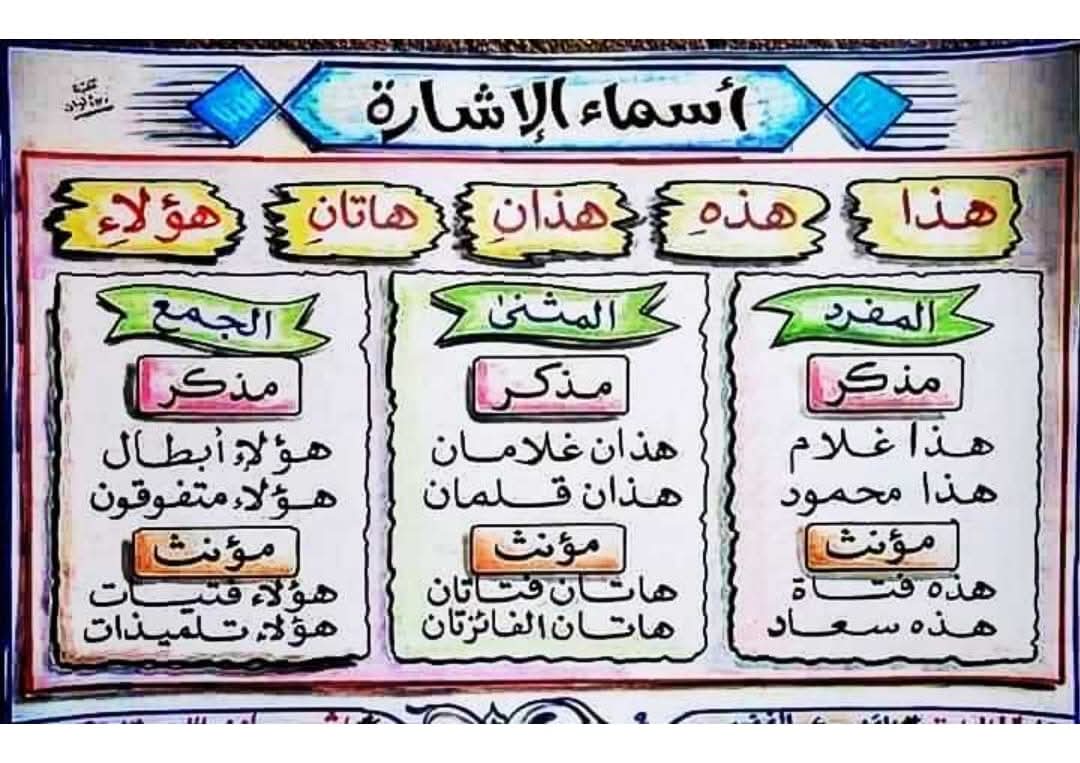 أسماء الإشارة
هذا هذهِ هذانِ هاتانِ هؤلاءِ
المفرد
مذكر
هذا غلام
هذا محمود
مؤنث
هذه فتاة
هذه سعاد
المثنى
مذكر
هذان غلامان
هذان قلمان
مؤنث
هاتان فتاتان
هاتان الفائزتان
الجمع
مذكر
هؤلاء أبطال
هؤلاء متفوقون
مؤنث
هؤلاء فتيات
هؤلاء تلميذات